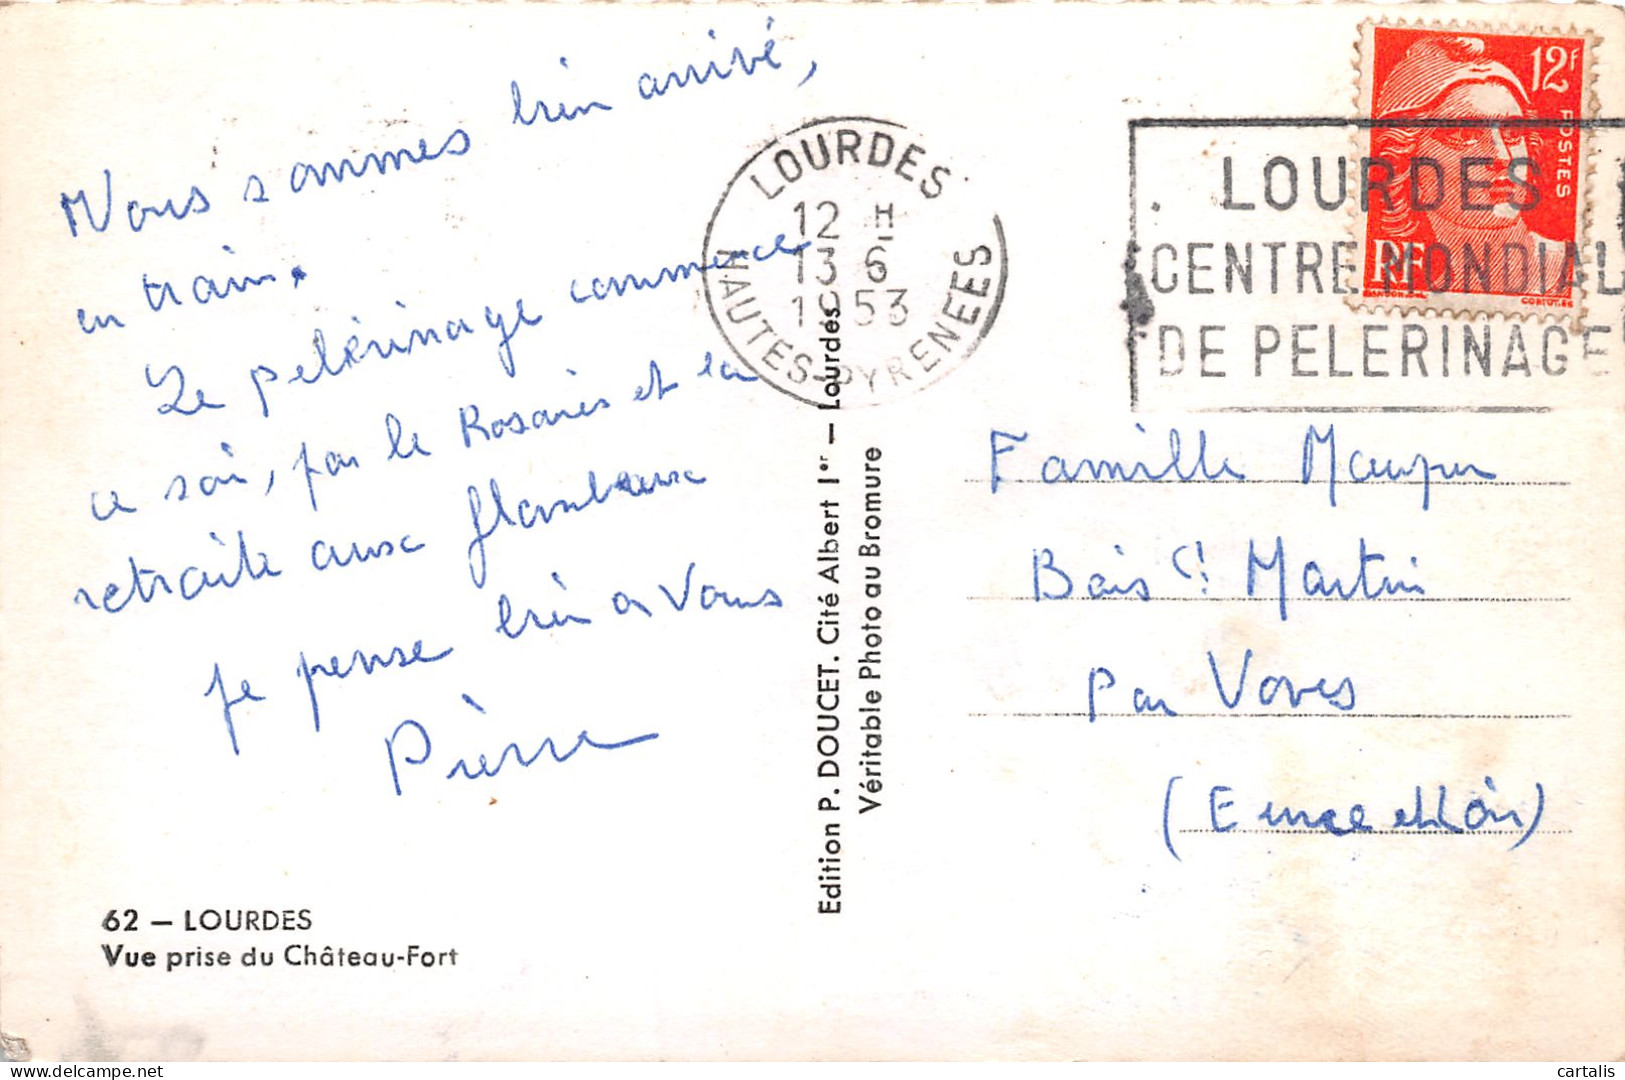 Nous sommes bien arrivé,
en train.
Le pelérinage commence
ce soir, par le Rosaries et la
retraite aux flambeaux
je pense bien a Vous
Pièrre
62 — LOURDES
Vue prise du Château-Fort
LOURDES
12 H
13 6
1953
HAUTES-PYRENEES
Edition P. DOUCET. Cité Albert Ier — Lourdes
Véritable Photo au Bromure
12F
POSTES
RF
GANDON.DEL.
CORTOT.SC
LOURDES
CENTRE MONDIAL
DE PELERINAGE
Famille
Bois St Martin
Par Voves
(Eure et Loir)
cartalis
delcampe.net